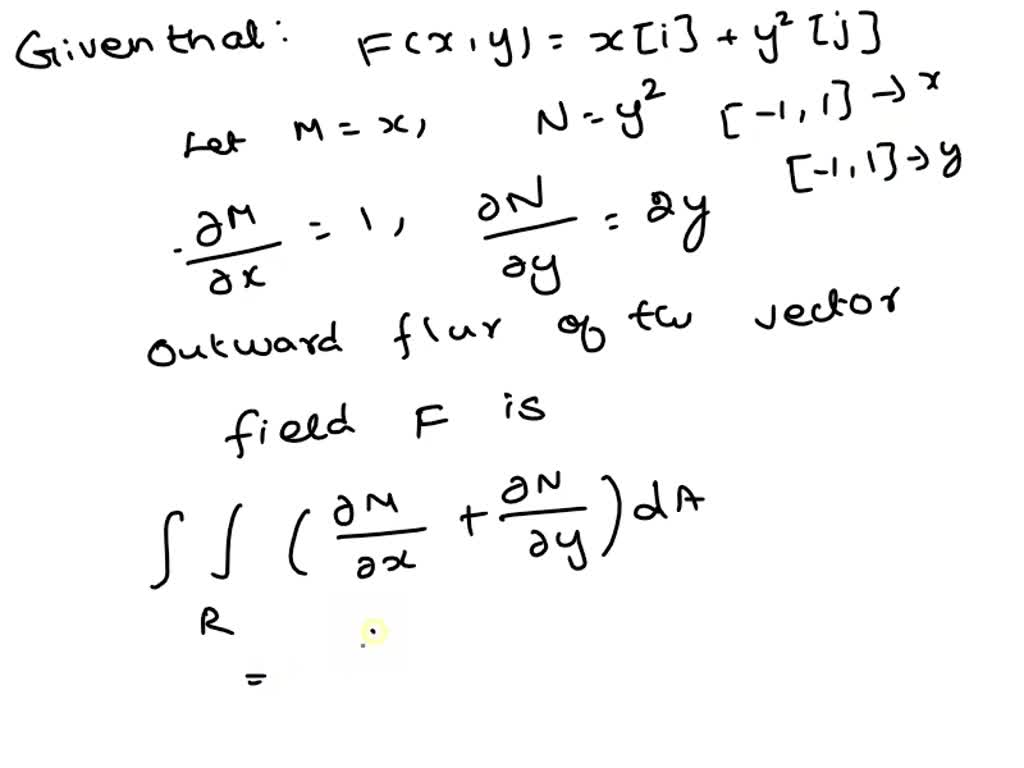 Given that: F(x,y) = x[i] + y² [j]
Let M = x, N = y² [-1,1] → x
[-1,1] → y
∂M/∂x = 1, ∂N/∂y = 2y
Outward flux of the vector
field F is
∫∫ (∂M/∂x + ∂N/∂y) dA
R
=